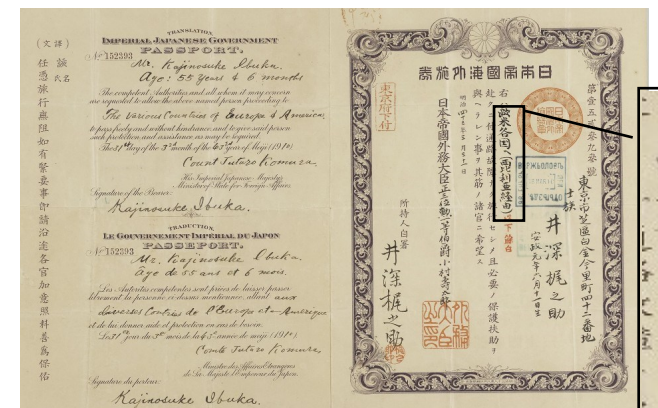 (譯文)
該 氏名
任憑旅行應阻如有緊要事即請沿途各官加意照料善爲保佑
TRANSLATION.
IMPERIAL JAPANESE GOVERNMENT
PASSPORT.
No 152393
Mr. Kajinosuke Ibuka.
Age: 55 years & 6 months
The competent Authorities and all whom it may concern
are requested to allow the above named person proceeding to
The Various Countries of Europe & America
to pass freely and without hindrance and to give said person
such protection and assistance as may be required.
The 31st day of the 3rd month of the 43rd year of Meiji (1910)
Count Jutaro Komura,
His Imperial Japanese Majesty's
Minister of State for Foreign Affairs.
Signature of the Bearer:
Kajinosuke Ibuka.
TRADUCTION.
LE GOUVERNEMENT IMPÉRIAL DU JAPON
PASSEPORT.
No 152393
Mr. Kajinosuke Ibuka.
âge de 55 ans et 6 mois.
Les Autorités compétentes sont priées de laisser passer
librement la personne ci-dessus mentionnée, allant aux
diverses Contrées de l'Europe et Amérique
et de lui donner aide et protection en cas de besoin.
Le 31 du 3e mois de la 43e année de meiji (1910)
Comte Jutaro Komura,
Ministre des Affaires Etrangères
de Sa Majesté l'Empereur du Japon.
Signature du porteur:
Kajinosuke Ibuka.
日本帝國海外旅券
第壹五貳参九参號
東京市芝區白金今里町四十二番地
士族
井深梶之助
安政元年六月十一日生
右ハ歐米各国ヘ(西比利亜経由)
赴クニ付通路故障ナク旅行セシメ且必要ノ保護扶助ヲ
與ヘラレン事ヲ其筋ノ諸官ニ希望ス
明治四十三年三月三十一日
日本帝國外務大臣正三位勲一等伯爵小村壽太郎
東京府下付
所持人自署
井深梶之助